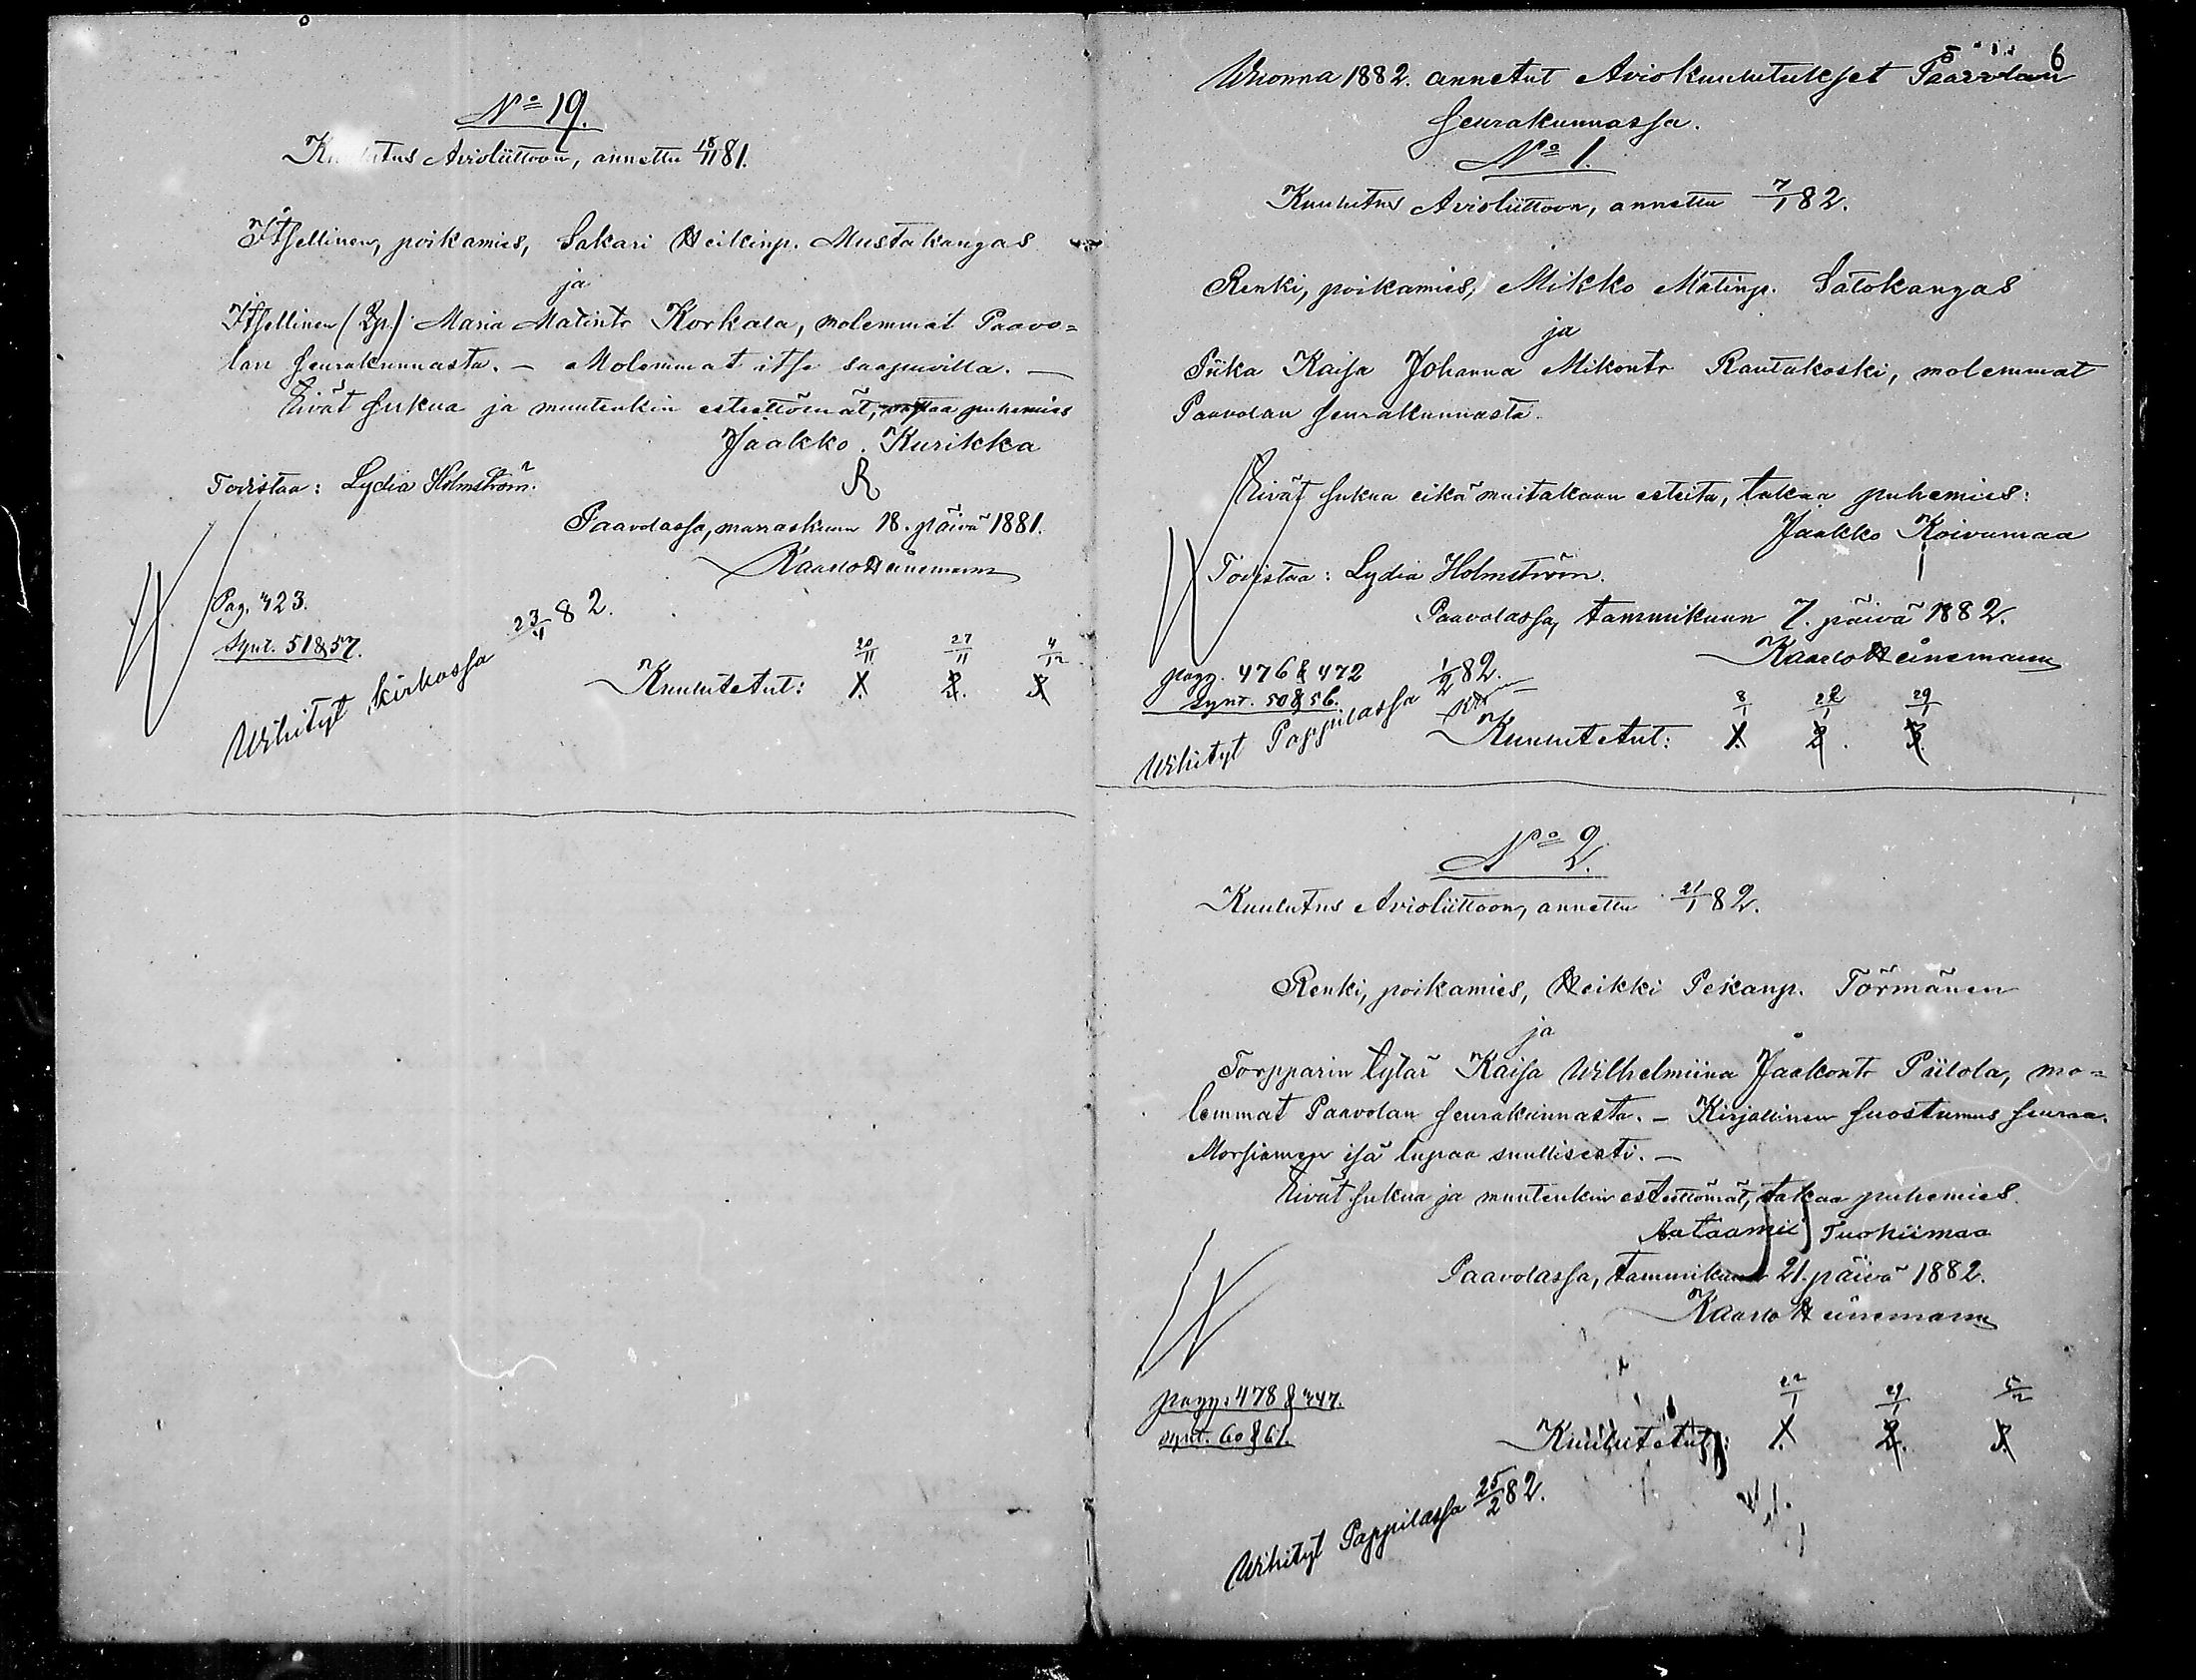 No 19.
Kuulutus Avioliittoon, annettu 18/11 81.
Itsellinen, poikamies, Sakari Heikinp. Mustakangas
ja
Itsellinen (Rp.) Maria Matintr Korkala, molemmat Paavo=
lan seurakunnasta. — Molemmat itse saapuvilla. —
Eivät sukua ja muutenkin esteettömät, puhemies
Jaakko Kurikka
Todistaa: Lydia Holmström.
Paavolassa, marraskuun 18. päivä 1881.
Kaarlo Heinemann
Pag. 423.
Synt. 51 & 57.
Wihityt kirkossa 23/4 82.
20/11 27/11 4/12
Kuulutetut: 1. 2. 3.
6
Wuonna 1882. annetut Aviokuulutukset Paavolan
seurakunnassa.
No 1.
Kuulutus Avioliittoon, annettu 7/1 82.
Renki, poikamies, Mikko Matinp. Satokangas
ja
Piika Kaisa Johanna Mikontr Rautakoski, molemmat
Paavolan seurakunnasta.
Eivät sukua eikä muitakaan esteitä, takaa puhemies:
Jaakko Koivumaa
Todistaa: Lydia Holmström.
Paavolassa, tammikuun 7. päivä 1882.
Kaarlo Heinemann
pagg. 476 & 472
Synt. 50 & 56.
Wihityt Pappilassa 1/2 82.
8/1 22/1 29/1
Kuulutetut: 1. 2. 3.
No 2.
Kuulutus Avioliittoon, annettu 21/1 82.
Renki, poikamies, Heikki Pekanp. Törmänen
ja
Torpparin tytär Kaisa Wilhelmiina Jaakontr Piilola, mo=
lemmat Paavolan seurakunnasta. — Kirjallinen suostumus seuraa.
Morsiamen isä lupaa suullisesti. —
Eivät sukua ja muutenkin esteettömät, takaa puhemies
Aataami Tuohiimaa
Paavolassa, tammikuun 21. päivä 1882.
Kaarlo Heinemann
pagg: 478 & 447.
Synt. 60 & 61.
22/1 29/1 5/2
Kuulutetut: 1. 2. 3.
Wihityt Pappilassa 25/2 82.